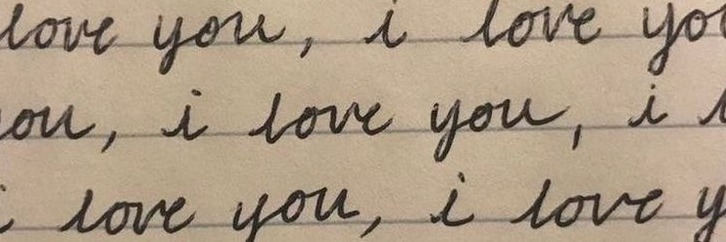 love you, i love you
you, i love you, i
i love you, i love y